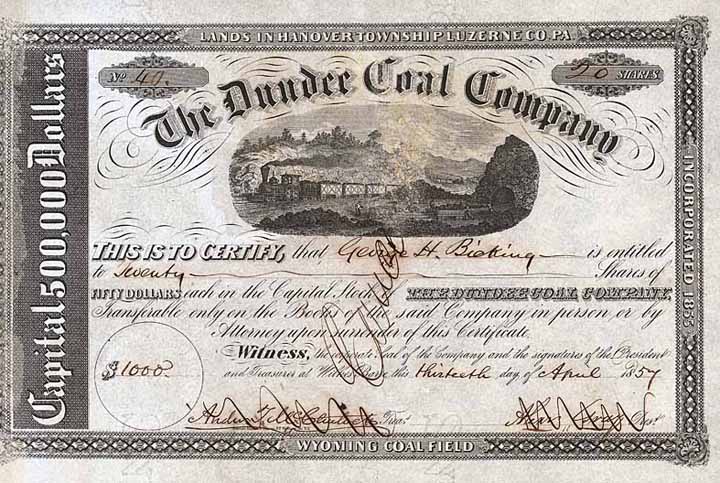 LANDS IN HANOVER TOWNSHIP LUZERNE CO. PA.
No 47.
20 SHARES
The Dundee Coal Company
Capital 500,000 Dollars
INCORPORATED 1855
THIS IS TO CERTIFY, that George H. Bicking is entitled
to Twenty Shares of
FIFTY DOLLARS each in the Capital Stock THE DUNDEE COAL COMPANY,
Transferable only on the Books of the said Company in person or by
Attorney upon surrender of this Certificate.
Witness, the corporate Seal of the Company and the signatures of the President
$1000
and Treasurer at Wilkes Barre this thirteeth day of April 1857
Treasr. Prest.
WYOMING COAL FIELD